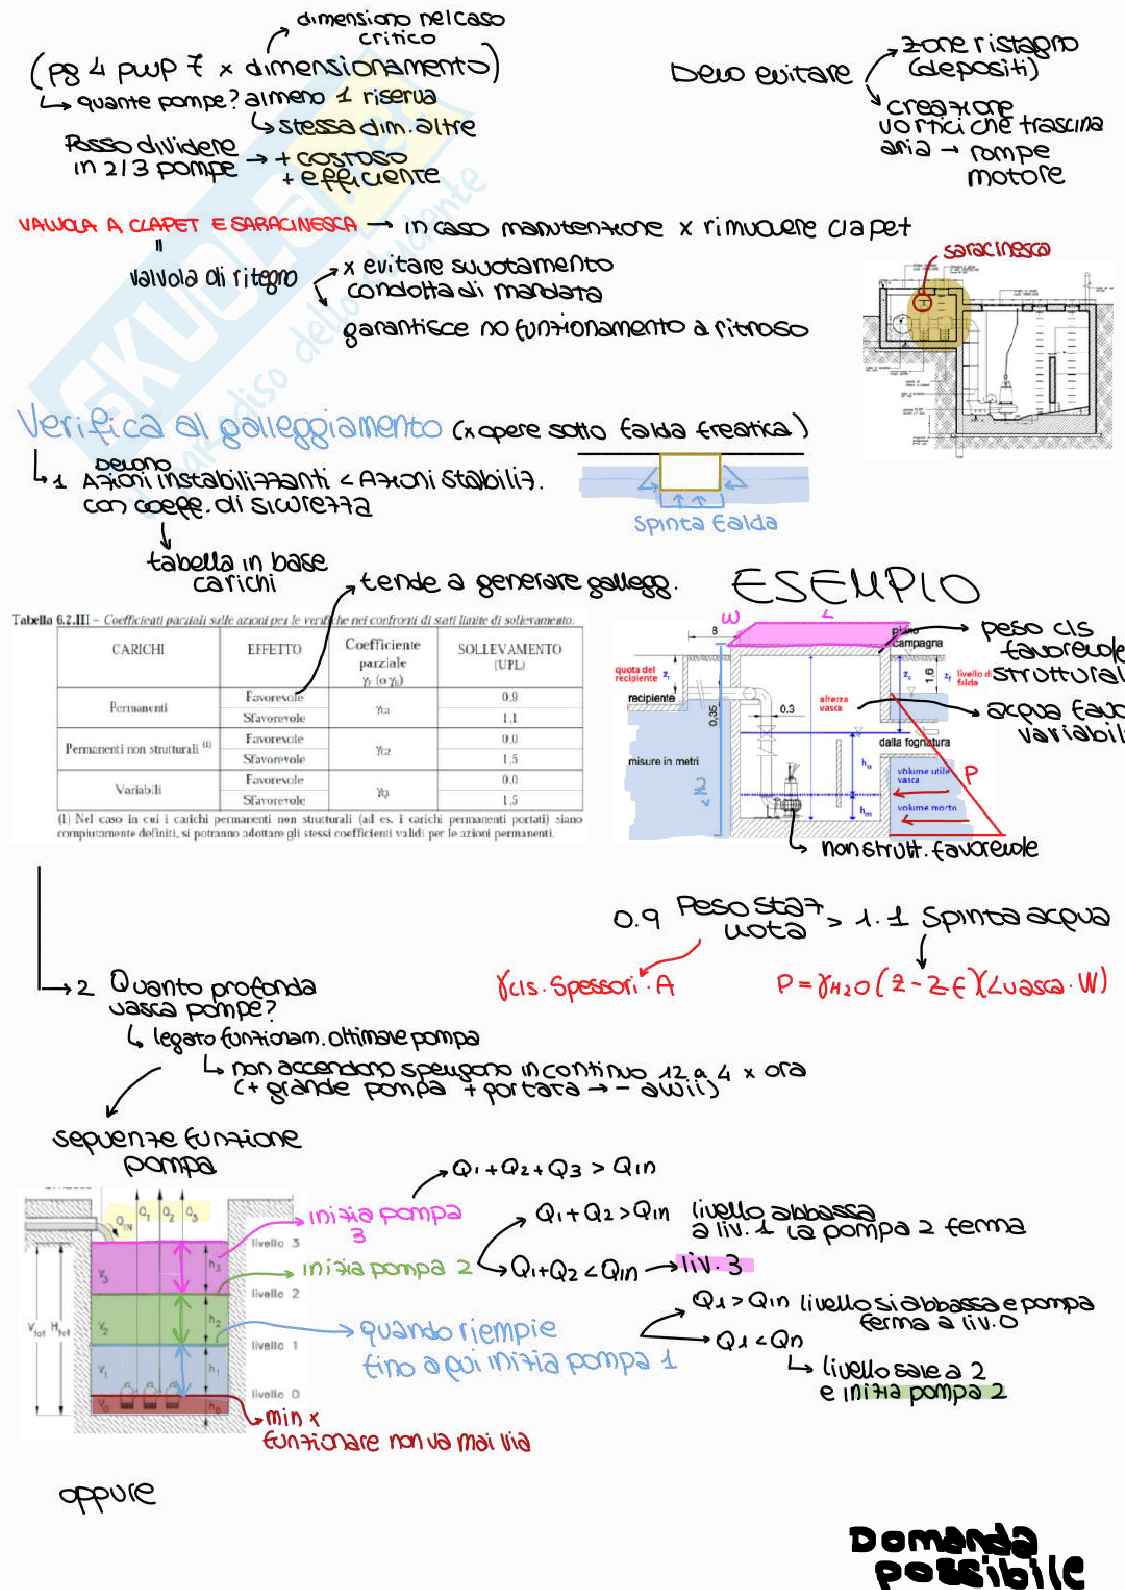 dimensiono nel caso
critico
(pg 4 pwp 7 x dimensionamento)
↳ quante pompe? almeno 1 riserva
↳ stessa dim. altre
Posso dividere
in 2/3 pompe → + costoso
+ efficiente
Devo evitare
zone ristagno
(depositi)
creazione
vortici che trascina
aria → rompe
motore
VALVOLA A CLAPET E SARACINESCA → in caso manutenzione x rimuovere clapet
saracinesca
valvola di ritegno
x evitare svuotamento
condotta di mandata
garantisce no funzionamento a ritroso
Verifica al galleggiamento (x opere sotto falda freatica)
1 devono
Azioni instabilizzanti < Azioni stabiliz.
con coeff. di sicurezza
spinta falda
tabella in base
carichi
tende a generare gallegg.
ESEMPIO
Tabella 6.2.III – Coefficienti parziali sulle azioni per le verifiche nei confronti di stati limite di sollevamento.
CARICHI EFFETTO Coefficiente parziale γF (o γE) SOLLEVAMENTO (UPL)
Permanenti Favorevole γG1 0.9
Sfavorevole 1.1
Permanenti non strutturali (1) Favorevole γG2 0.0
Sfavorevole 1.5
Variabili Favorevole γQi 0.0
Sfavorevole 1.5
(1) Nel caso in cui i carichi permanenti non strutturali (ad es. i carichi permanenti portati) siano
compiutamente definiti, si potranno adottare gli stessi coefficienti validi per le azioni permanenti.
W
L
8
piano
campagna
quota del
recipiente
zr
recipiente
0,35
0.3
altezza
vasca
zs
1.6
zf
livello di
falda
misure in metri
dalla fognatura
hu
volume utile
vasca
volume morto
hm
P
peso cls
favorevole
struttural
acqua favo
variabil
non strutt. favorevole
0.9 Peso staz. vuota > 1.1 Spinta acqua
γcls · Spessori · A
P = γH2O (z - zf)(Lvasca · W)
2 Quanto profonda
vasca pompe?
↳ legato funzionam. ottimale pompa
↳ non accendono spengono in continuo 12 a 4 x ora
(+ grande pompa + portata → - avvii)
sequenze funzione
pompa
QIN Q1 Q2 Q3
livello 3
livello 2
livello 1
livello 0
V3 h3
V2 h2
V1 h1
V0 h0
Vtot Htot
Q1 + Q2 + Q3 > Qin
inizia pompa
3
inizia pompa 2
Q1 + Q2 > Qin livello abbassa
a liv. 1 la pompa 2 ferma
Q1 + Q2 < Qin → liv. 3
quando riempie
fino a qui inizia pompa 1
Q1 > Qin livello si abbassa e pompa
ferma a liv. 0
Q1 < Qn
↳ livello sale a 2
e inizia pompa 2
min x
funzionare non va mai via
oppure
Domanda
possibile
SKUOLA.net
il paradiso dello studente